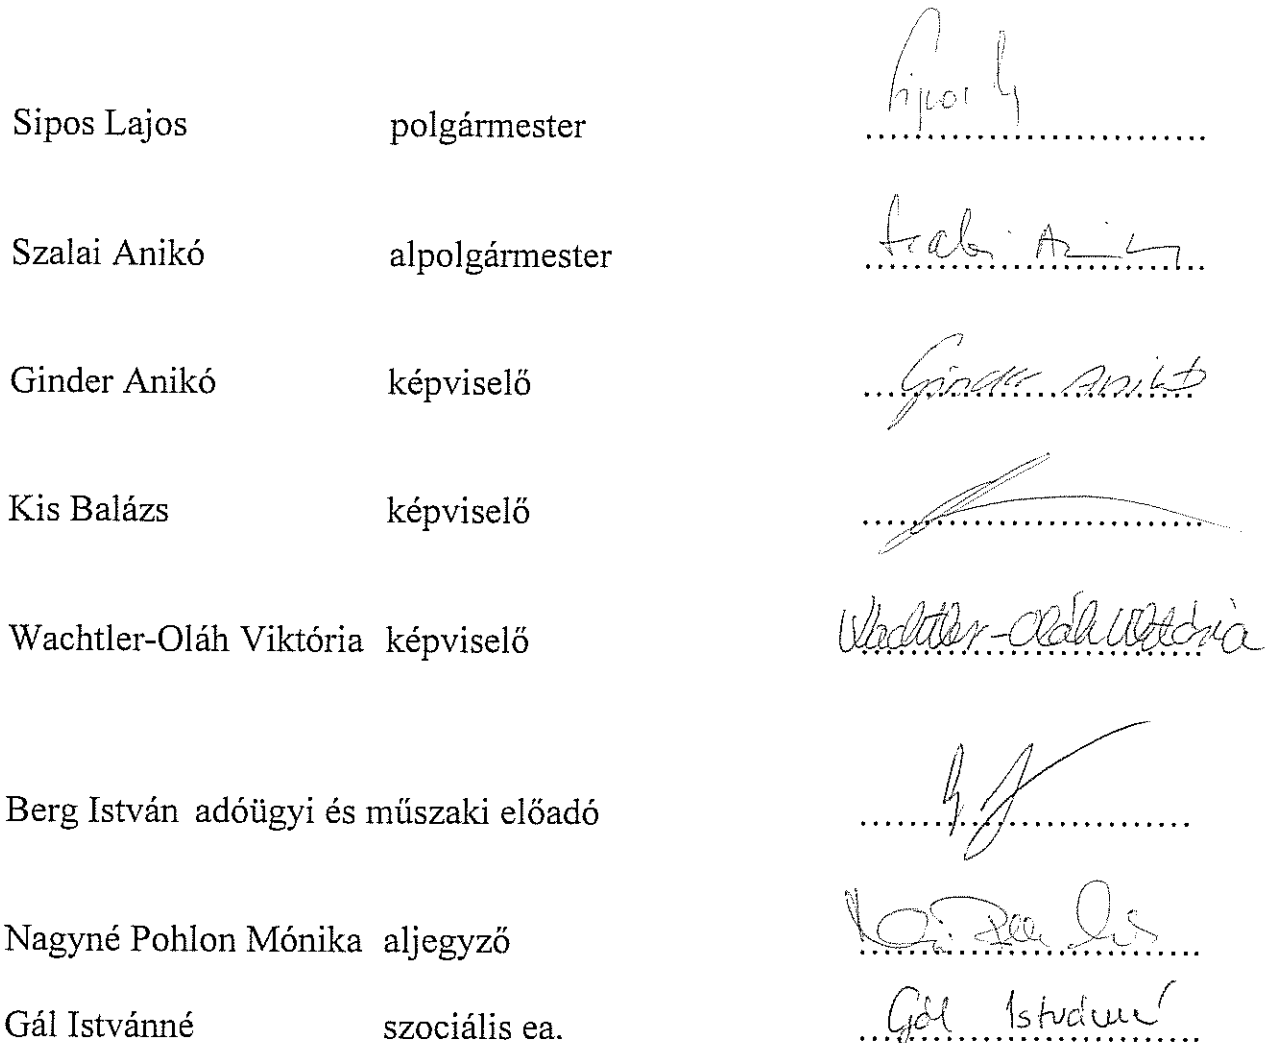 Sipos Lajos polgármester Sipos L
Szalai Anikó alpolgármester Szalai Anikó
Ginder Anikó képviselő Ginder Anikó
Kis Balázs képviselő
Wachtler-Oláh Viktória képviselő Wachtler-Oláh Viktória
Berg István adóügyi és műszaki előadó
Nagyné Pohlon Mónika aljegyző
Gál Istvánné szociális ea. Gál Istvánné